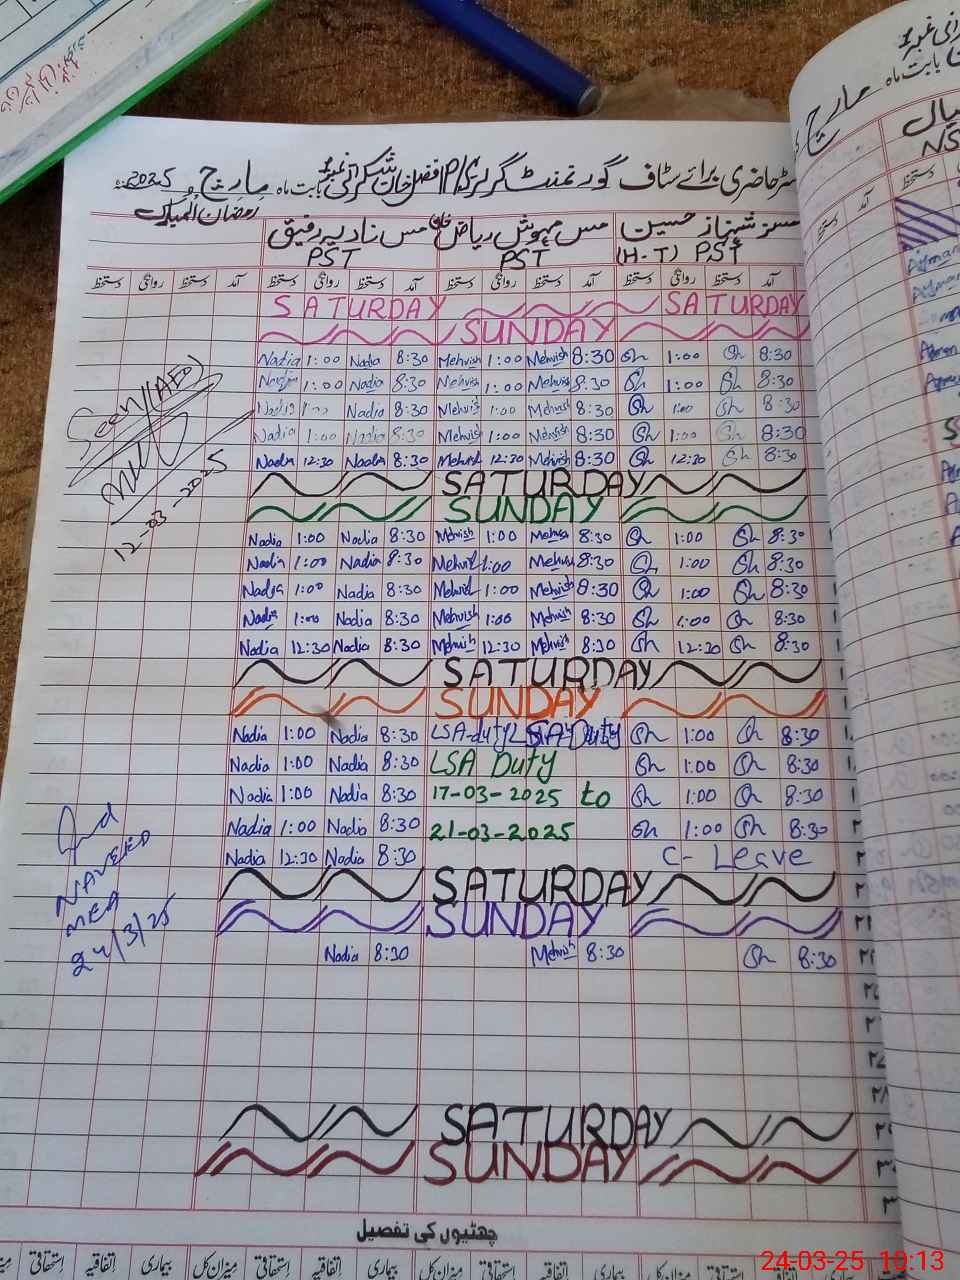 رجسٹر حاضری برائے سٹاف گورنمنٹ گرلز P/S افضل خان شکرانی نمبر 1 بابت ماہ مارچ 2025
رمضان المبارک
مسز شہناز حسین مس مہوش ریاض خان مس نادیہ رفیق
(H.T) PST PST PST
آمد دستخط روانگی دستخط آمد دستخط روانگی دستخط آمد دستخط روانگی دستخط دستخط روانگی دستخط
SATURDAY SATURDAY
SUNDAY
Nadia 1:00 Nadia 8:30 Mehvish 1:00 Mehvish 8:30 Sh 1:00 Sh 8:30
Nadia 1:00 Nadia 8:30 Mehvish 1:00 Mehvish 8:30 Sh 1:00 Sh 8:30
Nadia 1:00 Nadia 8:30 Mehvish 1:00 Mehvish 8:30 Sh 1:00 Sh 8:30
Nadia 1:00 Nadia 8:30 Mehvish 1:00 Mehvish 8:30 Sh 1:00 Sh 8:30
Nadia 12:30 Nadia 8:30 Mehvish 12:30 Mehvish 8:30 Sh 12:30 Sh 8:30
Seen (AEO)
12-03-2025
SATURDAY
SUNDAY
Nadia 1:00 Nadia 8:30 Mehvish 1:00 Mehvish 8:30 Sh 1:00 Sh 8:30
Nadia 1:00 Nadia 8:30 Mehvish 1:00 Mehvish 8:30 Sh 1:00 Sh 8:30
Nadia 1:00 Nadia 8:30 Mehvish 1:00 Mehvish 8:30 Sh 1:00 Sh 8:30
Nadia 1:00 Nadia 8:30 Mehvish 1:00 Mehvish 8:30 Sh 1:00 Sh 8:30
Nadia 12:30 Nadia 8:30 Mehvish 12:30 Mehvish 8:30 Sh 12:30 Sh 8:30
SATURDAY
SUNDAY
Nadia 1:00 Nadia 8:30 LSA-duty LSA Duty Sh 1:00 Sh 8:30
Nadia 1:00 Nadia 8:30 LSA Duty Sh 1:00 Sh 8:30
Nadia 1:00 Nadia 8:30 17-03-2025 to Sh 1:00 Sh 8:30
Nadia 1:00 Nadia 8:30 21-03-2025 Sh 1:00 Sh 8:30
Nadia 12:30 Nadia 8:30 C-Leave
NAVEED
MEA
24/3/25
SATURDAY
SUNDAY
Nadia 8:30 Mehvish 8:30 Sh 8:30
SATURDAY
SUNDAY
چھٹیوں کی تفصیل
استحقاقی اتفاقیہ بیماری میزان کل استحقاقی اتفاقیہ بیماری میزان کل استحقاقی اتفاقیہ بیماری میزان کل
بابت ماہ مارچ
24-03-25 10:13